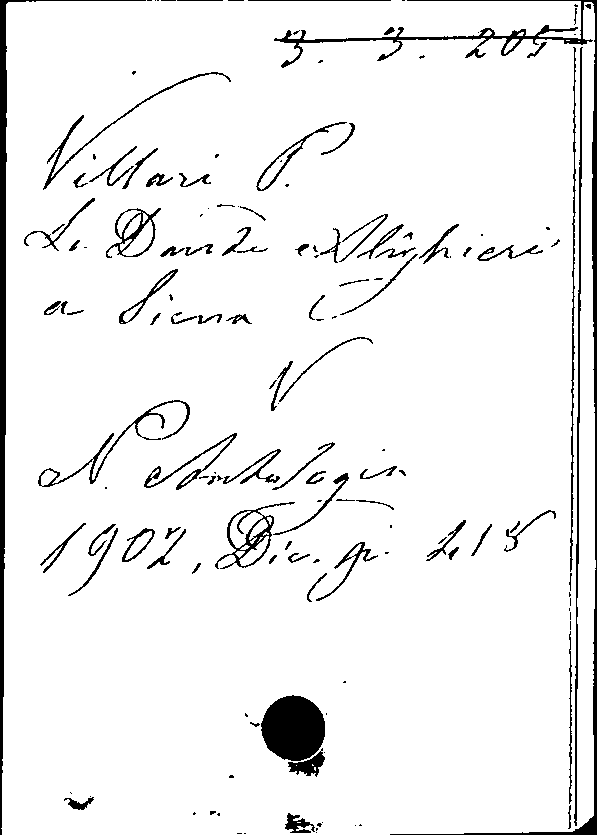 3. 3. 205
Villari P.
La Dante Alighieri
a Siena
V
N. Antologia
1902, Dic.